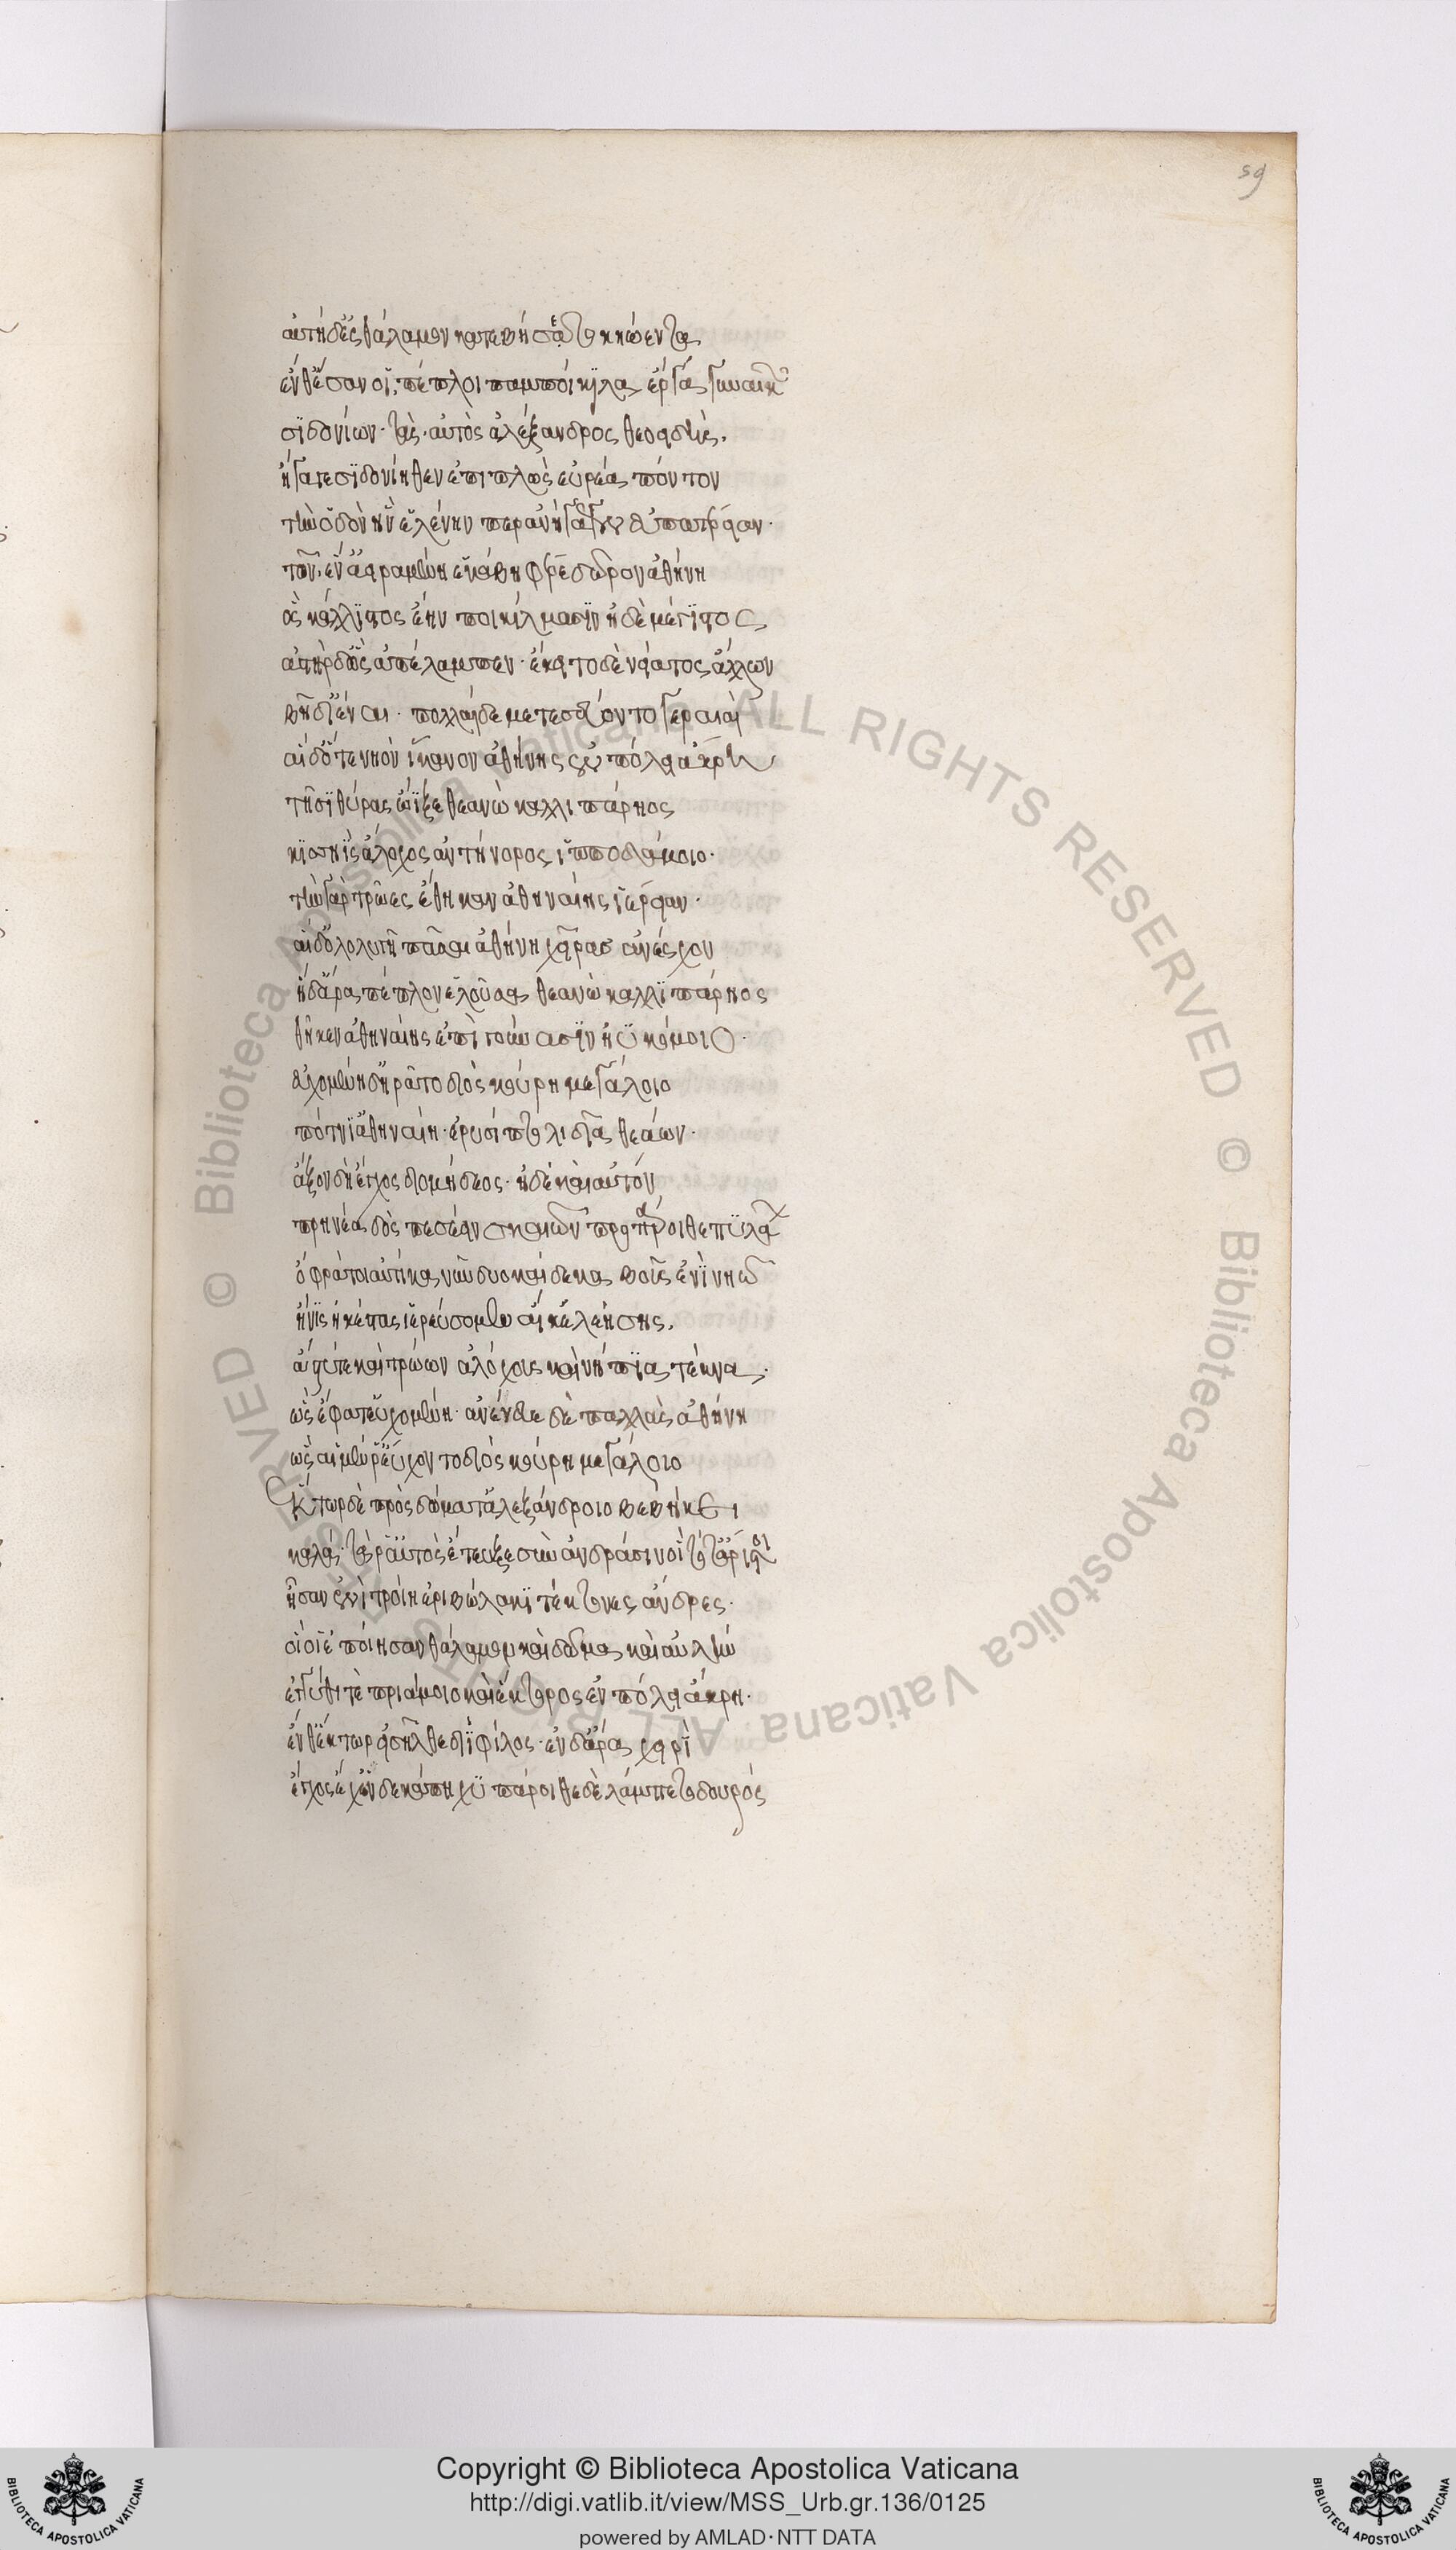 59
αὐτὴ δ' ἐς θάλαμον κατεβήσατο κηώεντα
ἔνθ' ἔσαν οἱ πέπλοι παμποίκιλα ἔργα γυναικῶν
σιδονίων· τὰς αὐτὸς ἀλέξανδρος θεοειδὴς.
ἤγαγε σιδονίηθεν ἐπιπλὼς εὐρέα πόντον
τὴν ὁδὸν ἣν ἑλένην περ ἀνήγαγεν εὐπατέρειαν·
τῶν ἕν' ἀειραμένη ἑκάβη φέρε δῶρον ἀθήνη
ὃς κάλλιστος ἔην ποικίλμασιν ἠδὲ μέγιστος
ἀστὴρ δ' ὣς ἀπέλαμπεν· ἔκειτο δὲ νείατος ἄλλων
βῆ δ' ἰέναι· πολλαὶ δὲ μετεσσεύοντο γεραιαὶ
αἱ δ' ὅτε νηὸν ἵκανον ἀθήνης ἐν πόλει ἄκρη
τῆσι θύρας ὤϊξε θεανὼ καλλιπάρηος
κισσηῒς ἄλοχος ἀντήνορος ἱπποδάμοιο·
τὴν γὰρ τρῶες ἔθηκαν ἀθηναίης ἱέρειαν·
αἱ δ' ὀλολυγῆ πᾶσαι ἀθήνη χεῖρας ἀνέσχον
ἡ δ' ἄρα πέπλον ἑλοῦσα θεανὼ καλλιπάρηος
θῆκεν ἀθηναίης ἐπὶ γούνασιν ἠϋκόμοιο·
εὐχομένη δ' ἠρᾶτο διὸς κούρη μεγάλοιο
πότνι' ἀθηναίη· ἐρυσίπτολι δῖα θεάων·
ἆξον δὴ ἔγχος διομήδεος· ἠδὲ καὶ αὐτόν
πρηνέα δὸς πεσέειν σκαιῶν προπάροιθε πυλάων
ὄφρα τοι αὐτίκα νῦν δυοκαίδεκα βοῦς ἐνὶ νηῶ
ἤνις ἠκέστας ἱερεύσομεν αἴ κ' ἐλεήσης.
ἄστυ τε καὶ τρώων ἀλόχους καὶ νήπια τέκνα.
ὣς ἔφατ' εὐχομένη· ἀνένευε δὲ παλλὰς ἀθήνη
ὣς αἱ μέν ῥ' εὔχοντο διὸς κούρη μεγάλοιο
ἕκτωρ δὲ πρὸς δώματ' ἀλεξάνδροιο βεβήκει
καλά· τά ῥ' αὐτὸς ἔτευξε σὺν ἀνδράσιν οἳ τότ' ἄριστοι
ἦσαν ἐνὶ τροίη ἐριβώλακι τέκτονες ἄνδρες·
οἵ οἱ ἐποίησαν θάλαμον καὶ δῶμα καὶ αὐλὴν
ἐγγύθι τε πριάμοιο καὶ ἕκτορος ἐν πόλει ἄκρη·
ἔνθ' ἕκτωρ εἰσῆλθε διὶ φίλος· ἐν δ' ἄρα χειρὶ
ἔγχος ἔχ' ἑνδεκάπηχυ πάροιθε δὲ λάμπετο δουρός
Copyright © Biblioteca Apostolica Vaticana
http://digi.vatlib.it/view/MSS_Urb.gr.136/0125
powered by AMLAD·NTT DATA
BIBLIOTECA APOSTOLICA VATICANA
BIBLIOTECA APOSTOLICA VATICANA
© Biblioteca Apostolica Vaticana ALL RIGHTS RESERVED © Biblioteca Apostolica Vaticana ALL RIGHTS RESERVED